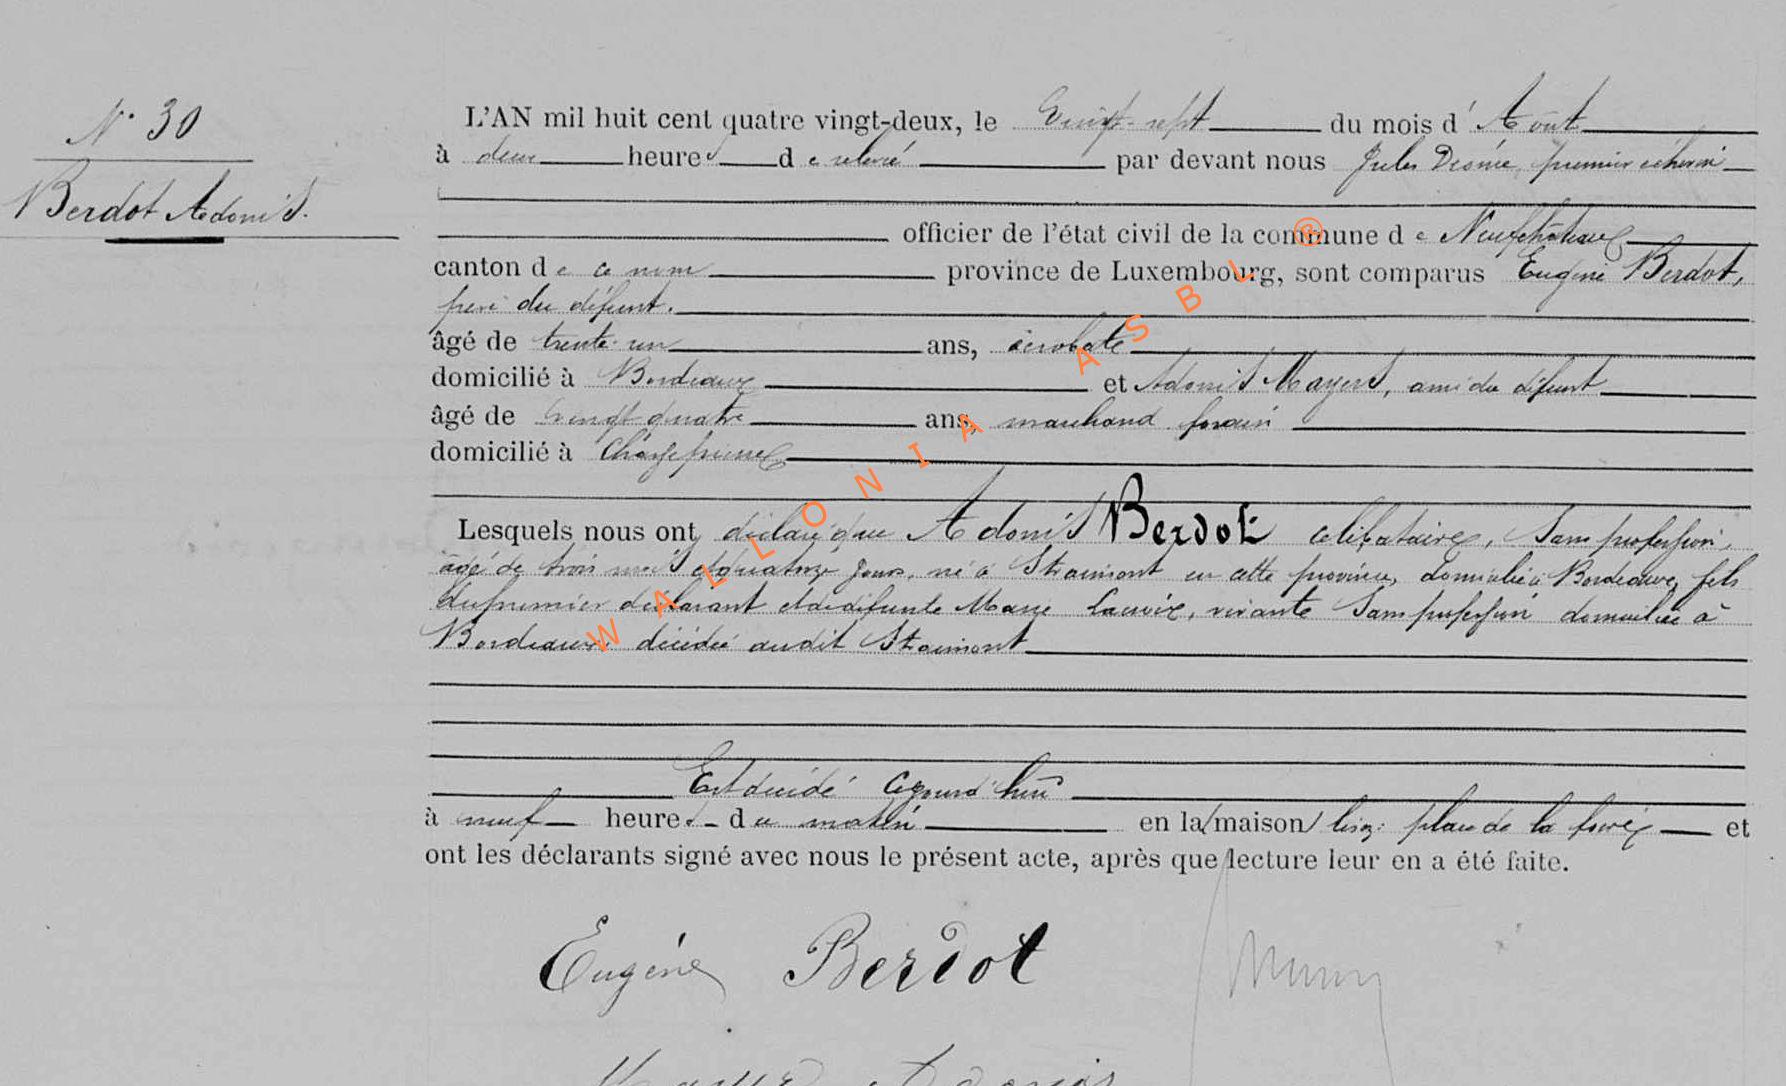 N° 30
Berdot Adonis.
L'AN mil huit cent quatre vingt-deux, le vingt-sept du mois d'Août
à deux heures de relevé par devant nous Jules premier échevin
officier de l'état civil de la commune de Neufchâteau
canton de ce nom province de Luxembourg, sont comparus Eugène Berdot,
père du défunt.
âgé de trente-un ans, acrobate
domicilié à Bordeaux et Adonis Mayers, ami du défunt
âgé de vingt quatre ans, marchand forain
domicilié à
Lesquels nous ont déclaré que Adonis Berdot célibataire, sans profession,
âgé de trois mois et quatorze jours, né à Straimont en cette province, domicilié à Bordeaux, fils
du premier déclarant et de défunte Marie vivante sans profession domiciliée à
Bordeaux décédée audit Straimont
Est décédé aujourd'hui
à neuf heures du matin en la maison place de la foire et
ont les déclarants signé avec nous le présent acte, après que lecture leur en a été faite.
Eugène Berdot
Adonis
WALLONIA ASBL ®